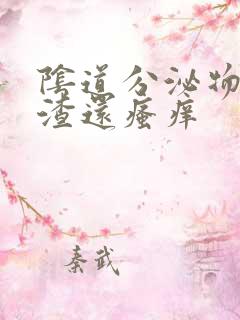 陰道分泌物
渣還瘙痒
秦武